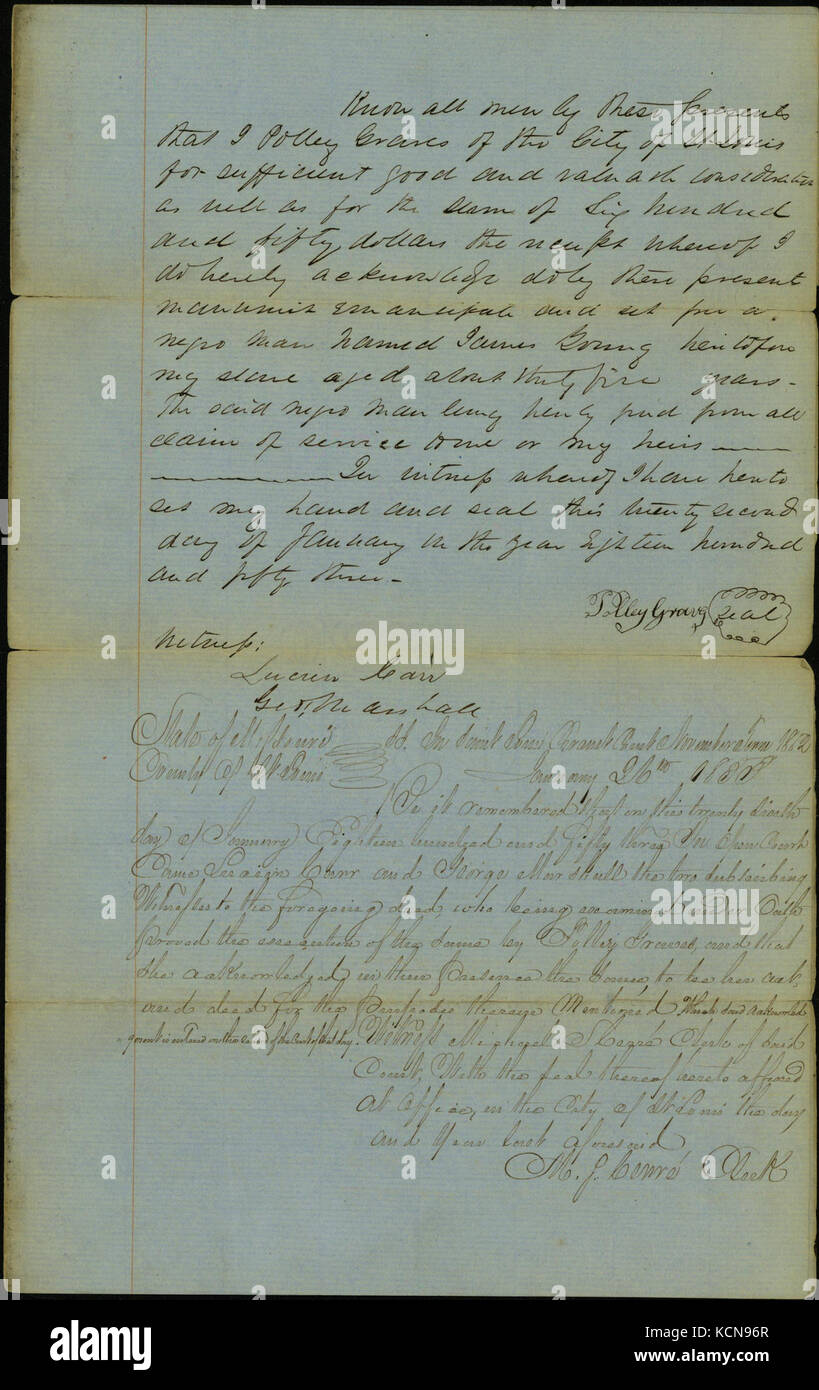 Know all men by these presents
that I Polley Graves of the City of St Louis
for sufficient good and valuable consideration
as well as for the sum of Six hundred
and fifty dollars the receipt whereof I
do hereby acknowledge do by these present
manumit emancipate and set free a
negro man named James Young heretofore
my slave aged about thirty five years -
the said negro man being hereby freed from all
claim of service to me or my heirs
In witness whereof I have hereto
set my hand and seal this twenty second
day of January in the year Eighteen hundred
and fifty three -
Polley Graves Seal
Witness:
Lucien Carr
Geo. Marshall
State of Missouri In Saint Louis Circuit Court November Term 1852
County of St Louis January 26th
Be it remembered that on this twenty sixth
day of January Eighteen hundred and fifty three In Open Court
Came Carr and George Marshall the two subscribing
Witnesses to the foregoing deed, who being examined under Oath
proved the execution of the same by Polley Graves, and that
She acknowledged in their presence the same, to be her act
and deed for the purposes therein Mentioned Which said acknowled
gement is entered on the record of the Court of that day. Witness Clerk of said
Court, With the seal thereof hereto affixed
at office, in the City of St Louis the day
and Year last aforesaid
Clerk
alamy
a
Image ID: KCN96R
www.alamy.com